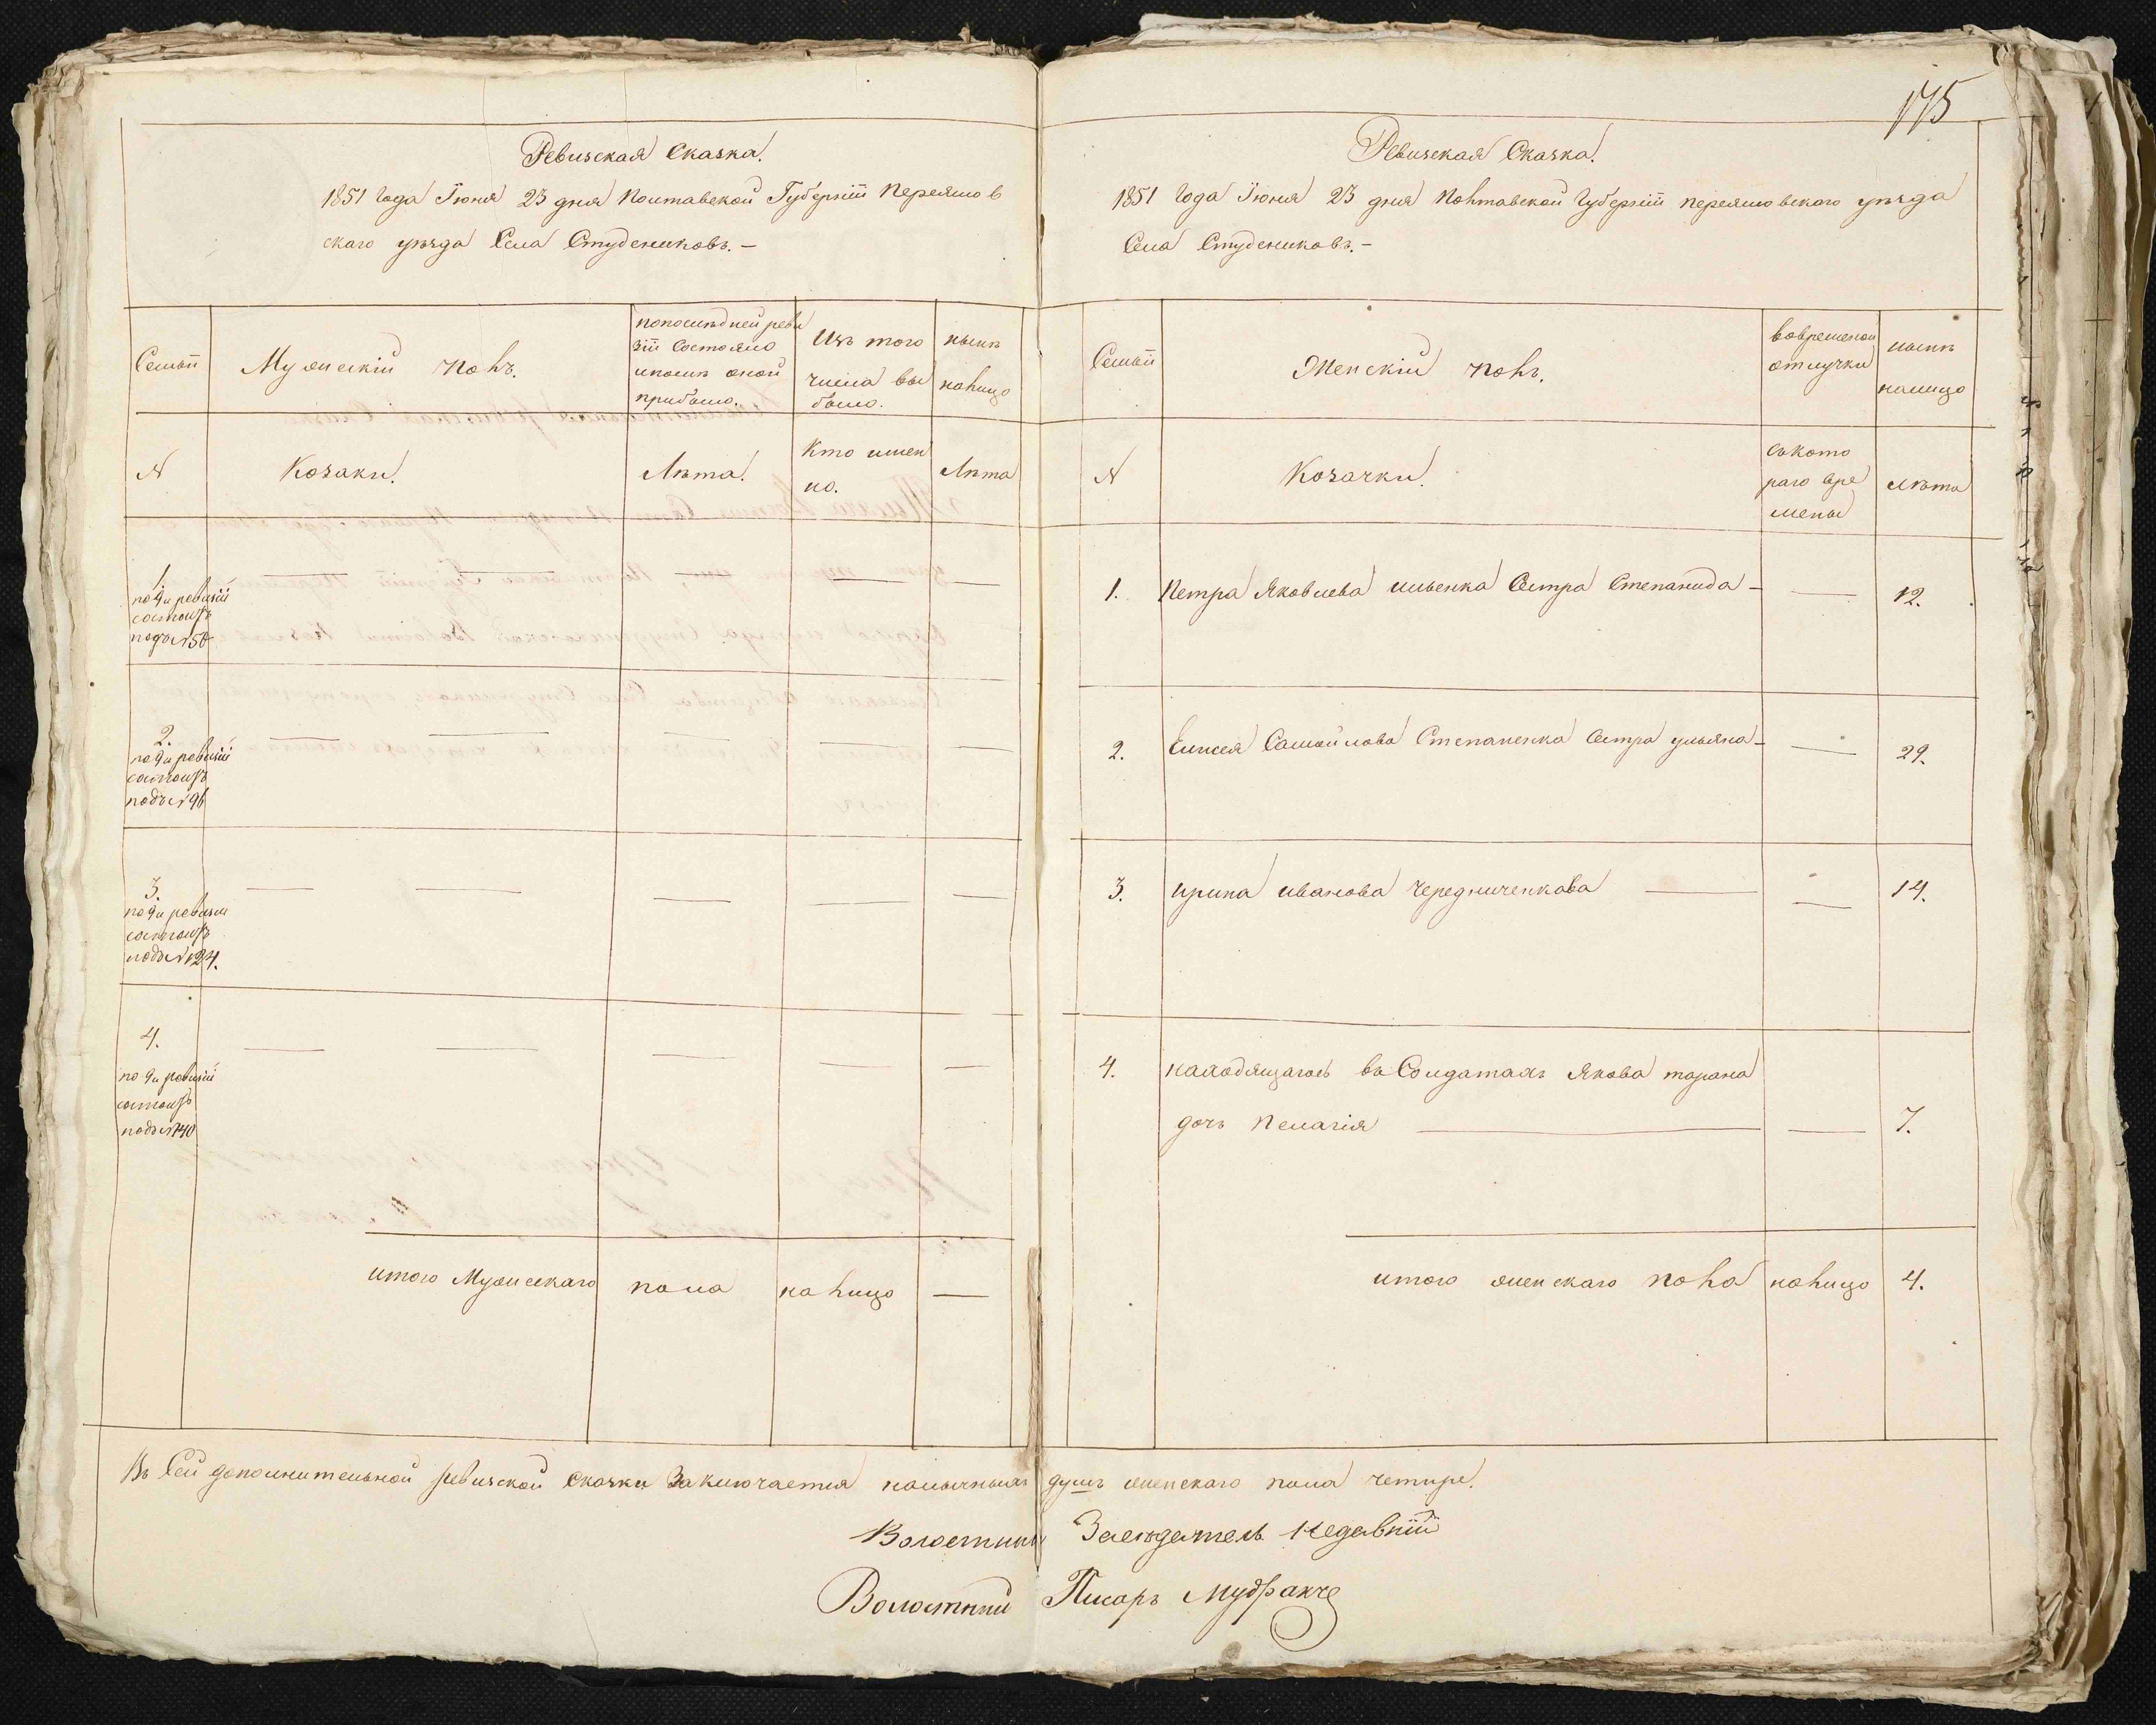 175
Ревизская Сказка.
1851 Года Іюня 23 дня Полтавской Губерніи Переяслов
скаго уѣзда Села Студениковъ. —
Семьи
Мужескій полъ.
попослѣдней реви
зіи Состояло
ипослѣ оной
прибыло.
Изъ того
числа вы
было.
нынѣ
налицо
№
Козаки.
Лѣта.
Кто имен
но.
Лѣта
1.
по 9й ревизіи
состоитъ
подъ №
2.
по 9й ревизіи
состоитъ
подъ №96
3.
по 9й ревизіи
состоитъ
подъ №124.
4.
по 9й ревизіи
состоитъ
подъ №140
итого Мужескаго пола налицо —
Ревизская Сказка.
1851 Года Іюня 23 дня Полтавской Губерніи переясловскаго уѣзда
Села Студениковъ. —
Семьи
Женскій полъ.
вовременой
отлучки
нынѣ
налицо
№
Козачки.
съкото
раго вре
мены
лѣта
1. Петра Яковлева ильенка Сестра Степанида — — 12.
2. Елисея Самойлова Степаненка Сестра ульяна — — 29.
3. ирина иванова чередниченкова — — 14.
4. находящагось въ Солдатахъ Якова тарана
дочь пелагія — — 7.
итого женскаго пола налицо 4.
Въ Сей дополнительной ревизской сказки Заключается наличныхъ душъ женскаго пола четире.
Волостный Засѣдатель Недавній
Волостный Писарь